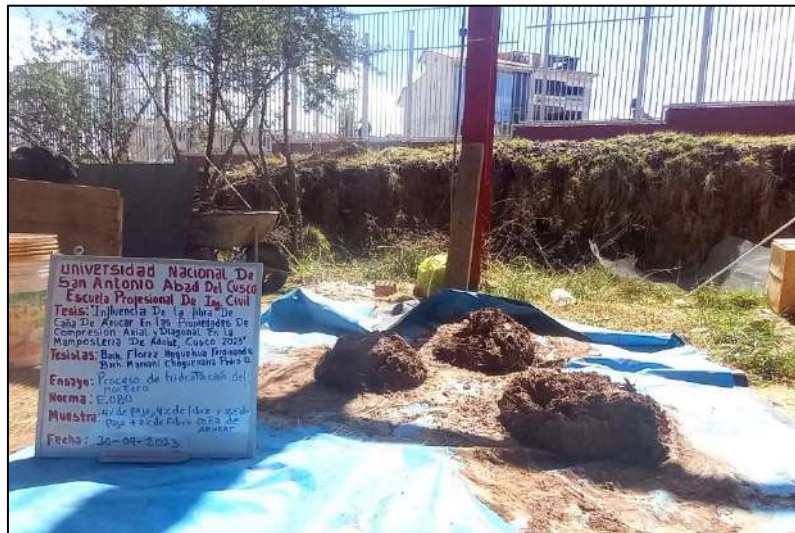 Universidad Nacional De
San Antonio Abad Del Cusco
Escuela Profesional De Ing. Civil
Tesis: "Influencia De la fibra De
Caña De Azucar En las Propiedades De
Compresión Axial y Diagonal En la
Mampostería De Adobe, Cusco 2023"
Tesistas: Bach. Florez Noquehua Ferdinand
Bach. Mamani Choquenaira Pedro
Ensayo: Proceso de hidratación del
mortero
Norma: E.080
Muestra: 4% de paja, 4% de fibra y
paja + 2% de fibra caña de
azucar
Fecha: 30-09-2023